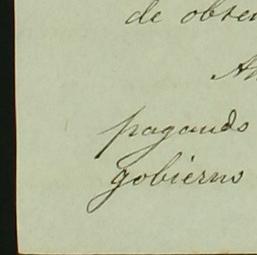 de obser
An
pagando
gobierno